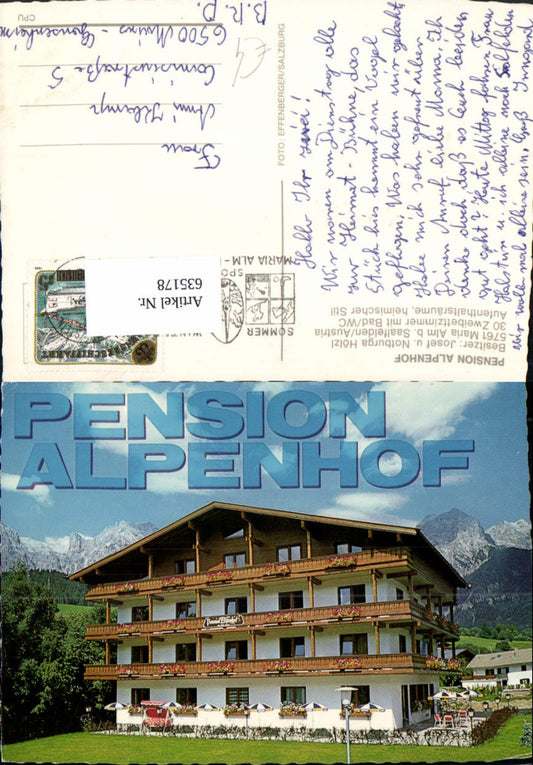 PENSION ALPENHOF
Besitzer: Josef u. Notburga Hölzl
5761 Maria Alm b. Saalfelden/Austria
30 Zweibettzimmer mit Bad/WC
Aufenthaltsräume, heimischer Stil
SOMMER
SPO
MARIA ALM
Artikel Nr.
635178
SCHIFFAHRT
FOTO: EFFENBERGER/SALZBURG
CPU
Hallo Ihr zwei!
Wir waren am Dienstag alle
zur Heimat-Bühne, das
Stück hies kommt ein Vogel
geflogen. Was haben wir gelacht
Habe mich sehr gefreut über
Deinen Anruf liebe Mama. Ich
denke doch, daß es Euch beiden
gut geht? Heute Mittag fahren Frau
u. ich alleine nach Saalfelden
wir mal alleine sein, Gruß Irmgard
Frau
Anni Klamp
5
6500 Mainz - Gonsenheim
B.R.D.
€4
PENSION
ALPENHOF